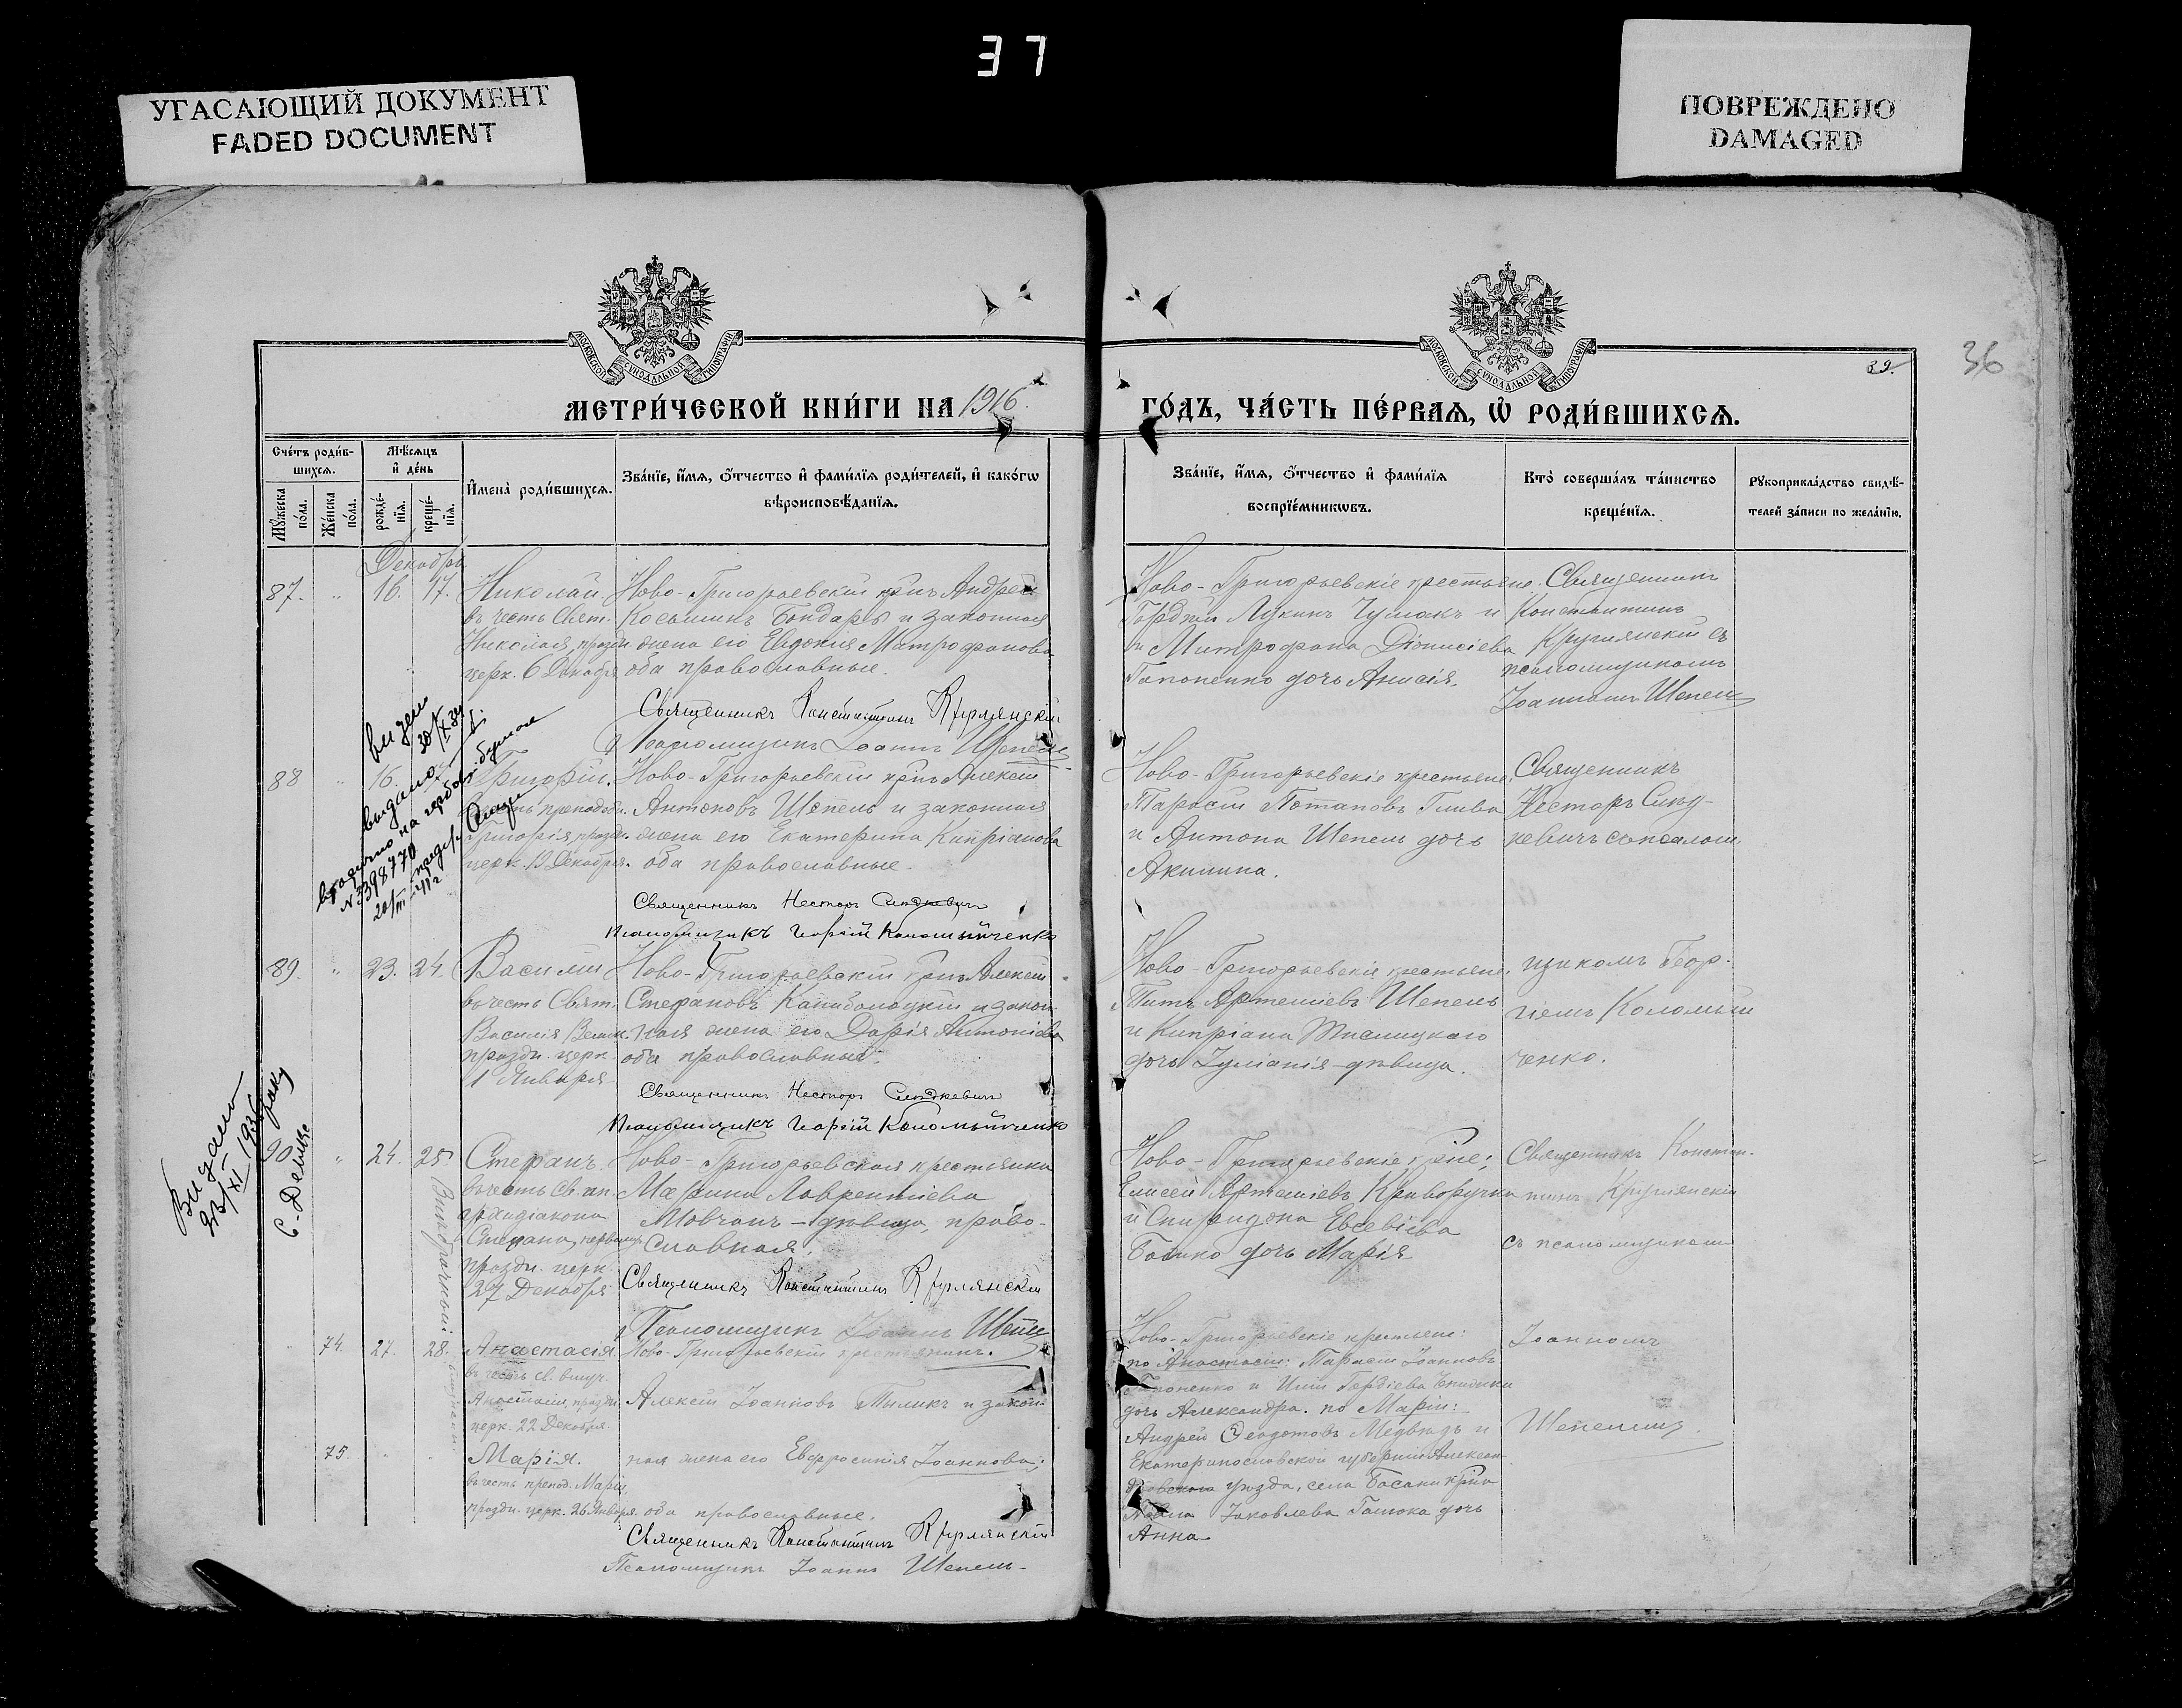 37
УГАСАЮЩИЙ ДОКУМЕНТ
FADED DOCUMENT
ПОВРЕЖДЕНО
DAMAGED
МОСКОВСКОЙ СѴНОДАЛЬНОЙ ТИПОГРАФІИ
МОСКОВСКОЙ СѴНОДАЛЬНОЙ ТИПОГРАФІИ
39.
36
МЕТРИ́ЧЕСКОЙ КНИ́ГИ НА 1916.
ГО́ДЪ, ЧА́СТЬ ПЕ́РВАѦ, Ѡ҆ РОДИ́ВШИХСѦ.
Сче́тъ роди́в-
шихсѧ.
Мꙋ́жеска по́ла.
Же́нска по́ла.
Мѣ́сѧцъ и҆ де́нь
рожде́-нїѧ.
креще́-нїѧ.
И҆мена̀ роди́вшихсѧ.
Зва́нїе, и҆́мѧ, ѻ҆́тчество и҆ фами́лїѧ роди́телей, и҆ како́гѡ
вѣроисповѣ́данїѧ.
Зва́нїе, и҆́мѧ, ѻ҆́тчество и҆ фами́лїѧ
воспрїе́мникѡвъ.
Кто̀ соверша́лъ та́инство
креще́нїѧ.
Рꙋкоприкла́дство свидѣ́-
телей за́писи по жела́нїю.
Декабрь
87. " 16. 17. Николай
въ честь Свят.
Николая, празд.
церк. 6 Декабря
Ново-Григорьевскій кр-нъ Андрей
Косьминъ Бондарь и законная
жена его Евдокія Митрофанова
оба православные.
Священникъ Константинъ Круглянскій
Псаломщикъ Іоаннъ Шепель
Ново-Григорьевскіе крестьяне:
Гордій Лукинъ Чумакъ и
Митрофана Діонисіева
Гапоненко дочь Анисія.
Священникъ
Константинъ
Круглянскій съ
псаломщикомъ
Іоанномъ Шепель
88 " 16. Григорій.
въ честь преподоб.
Григорія, празд.
церк. 19 Декабря.
Ново-Григорьевскій кр-нъ Алексій
Антоновъ Шепель и законная
жена его Екатерина Кипріанова
оба православные.
Священникъ Несторъ Синдкевичъ
Псаломщикъ Георгій Коломыйченко
Ново-Григорьевскіе крестьяне:
Тарасій Потаповъ Глива
и Антона Шепель дочь
Акилина.
Священникъ
Несторъ Синд-
кевичъ съ псалом-
выдано
20/III 41 г.
№ 3398770
89. " 23. 24. Василій
въ честь Свят.
Василія Велик.
праздн. церк.
1 Января
Ново-Григорьевскій кр-нъ Алексій
Стефановъ Канибалоцкій и закон-
ная жена его Дарія Антоніева
оба православные.
Священникъ Несторъ Синдкевичъ
Псаломщикъ Георгій Коломыйченко
Ново-Григорьевскіе крестьяне:
Титъ Артеміевъ Шепель
и Кипріана Тислицкаго
дочь Іуліанія-дѣвица.
щикомъ Геор-
гіемъ Коломый-
ченко.
Видано
23/XI 1936
90. " 24. 25. Стефанъ
въ честь Св. ап.
архидіакона
Стефана, первомуч.
праздн. церк.
27 Декабря
Внебрачный
Ново-Григорьевская крестьянка
Марина Лаврентіева
Мовчанъ - дѣвица, право-
славная.
Священникъ Константинъ Круглянскій
Псаломщикъ Іоаннъ Шепель
Ново-Григорьевскіе кр-не:
Елисей Артеміевъ Криворучка
и Спиридона Евсевіева
Бойко дочь Марія
Священникъ Констан-
тинъ Круглянскій
съ псаломщикомъ
" 74. 27. 28. Анастасія
въ честь св. велмуч.
Анастасіи, праздн.
церк. 22 Декабря.
75. " " Марія.
въ честь препод. Маріи,
праздн. церк. 26 Января.
близнецы
Ново-Григорьевскій крестьянинъ
Алексій Іоанновъ Тыликъ и закон-
ная жена его Евфросинія Іоаннова;
оба православные.
Священникъ Константинъ Круглянскій
Псаломщикъ Іоаннъ Шепель
Ново-Григорьевскіе крестьяне:
по Анастасіи: Тарасій Іоанновъ
Гапоненко и
дочь Александра. по Маріи:
Андрей Ѳеодотовъ Медвѣдь и
Екатеринославской губерніи Алексан-
дровскаго уѣзда, села Басани кр-на
Іаковлева дочь
Анна
Іоанномъ
Шепелемъ.